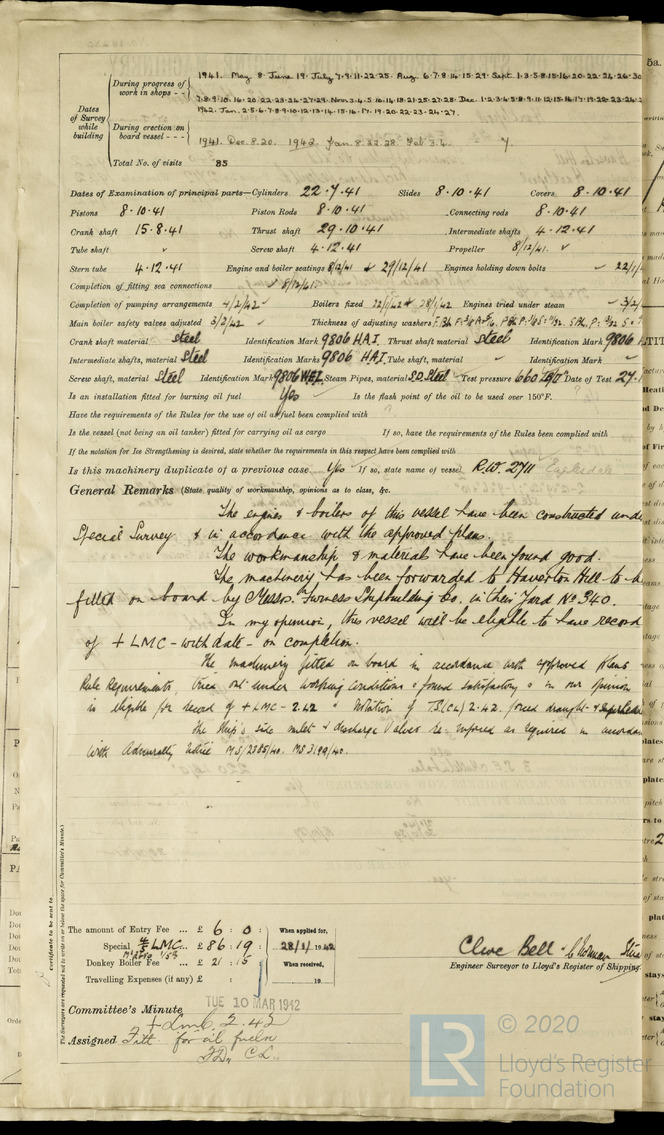 1941. May 8. June 19. July 7.9.11.22.25. Aug. 6.7.8.14.15.29. Sept. 1.3.5.8.15.16.20.22.24.26.30
During progress of work in shops - -
1942. Jan. 2.5.6.7.8.9.10.12.13.14.15.16.17.19.20.22.23.24.27.
Dates of Survey while building
During erection on board vessel - - -
1941. Dec. 8.20. 1942. Jan. 8.22.28. Feb 3.4.
Total No. of visits 85
Dates of Examination of principal parts—Cylinders 22.7.41 Slides 8.10.41 Covers 8.10.41
Pistons 8.10.41 Piston Rods 8.10.41 Connecting rods 8.10.41
Crank shaft 15.8.41 Thrust shaft 29.10.41 Intermediate shafts 4.12.41
Tube shaft ✓ Screw shaft 4.12.41 Propeller 8/12/41. ✓
Stern tube 4.12.41 Engine and boiler seatings 8/12/41 & 29/12/41 Engines holding down bolts ✓ 22/1/
Completion of fitting sea connections ✓ 8/12/41
Completion of pumping arrangements 4/2/42 ✓ Boilers fixed 22/1/42 & 28/1/42 Engines tried under steam ✓ 3/2/
Main boiler safety valves adjusted 3/2/42 ✓ Thickness of adjusting washers
Crank shaft material Steel Identification Mark 9806 HAI. Thrust shaft material Steel Identification Mark 9806
Intermediate shafts, material Steel Identification Marks 9806 HAI. Tube shaft, material ✓ Identification Mark ✓
Screw shaft, material Steel Identification Mark 9806 Steam Pipes, material S.D. Steel Test pressure 660 Date of Test 27.
Is an installation fitted for burning oil fuel Yes Is the flash point of the oil to be used over 150°F.
Have the requirements of the Rules for the use of oil as fuel been complied with
Is the vessel (not being an oil tanker) fitted for carrying oil as cargo If so, have the requirements of the Rules been complied with
If the notation for Ice Strengthening is desired, state whether the requirements in this respect have been complied with
Is this machinery duplicate of a previous case Yes If so, state name of vessel R.W. 2711 Eaglesdale
General Remarks (State quality of workmanship, opinions as to class, &c.
The engines & boilers of this vessel have been constructed unde
Special Survey & in accordance with the approved plans.
The workmanship & materials have been found good.
The machinery has been forwarded to Haverton Hill to b
fitted on board by Messrs. Furness Shipbuilding Co. in their Yard No 340.
In my opinion, this vessel will be eligible to have record
of + LMC - with date - on completion.
The machinery fitted on board in accordance with approved plans
Rule Requirements, tried out under working conditions & found satisfactory & in our opinion
is eligible for record of + LMC - 2.42 & Notation of TS(CL) 2.42. forced draught &
The ship's side inlet & discharge valves re-inforced as required in accordan
with Admiralty Notice MS/2585/40. MS 3199/40.
Certificate to be sent to
(The Surveyors are requested not to write on or below the space for Committee's Minute.)
The amount of Entry Fee ... £ 6 : 0
Special 4/5 LMC ... £ 86 : 19
Donkey Boiler Fee ... £ 21 : 15
Travelling Expenses (if any) £ :
When applied for,
28/1/1942
When received,
19
Clive Bell
Engineer Surveyor to Lloyd's Register of Shipping.
Committee's Minute TUE 10 MAR 1942
Assigned + Lmc 2.42
Fitt. for oil fuel
FD, CL.
LR
© 2020
Lloyd's Register
Foundation